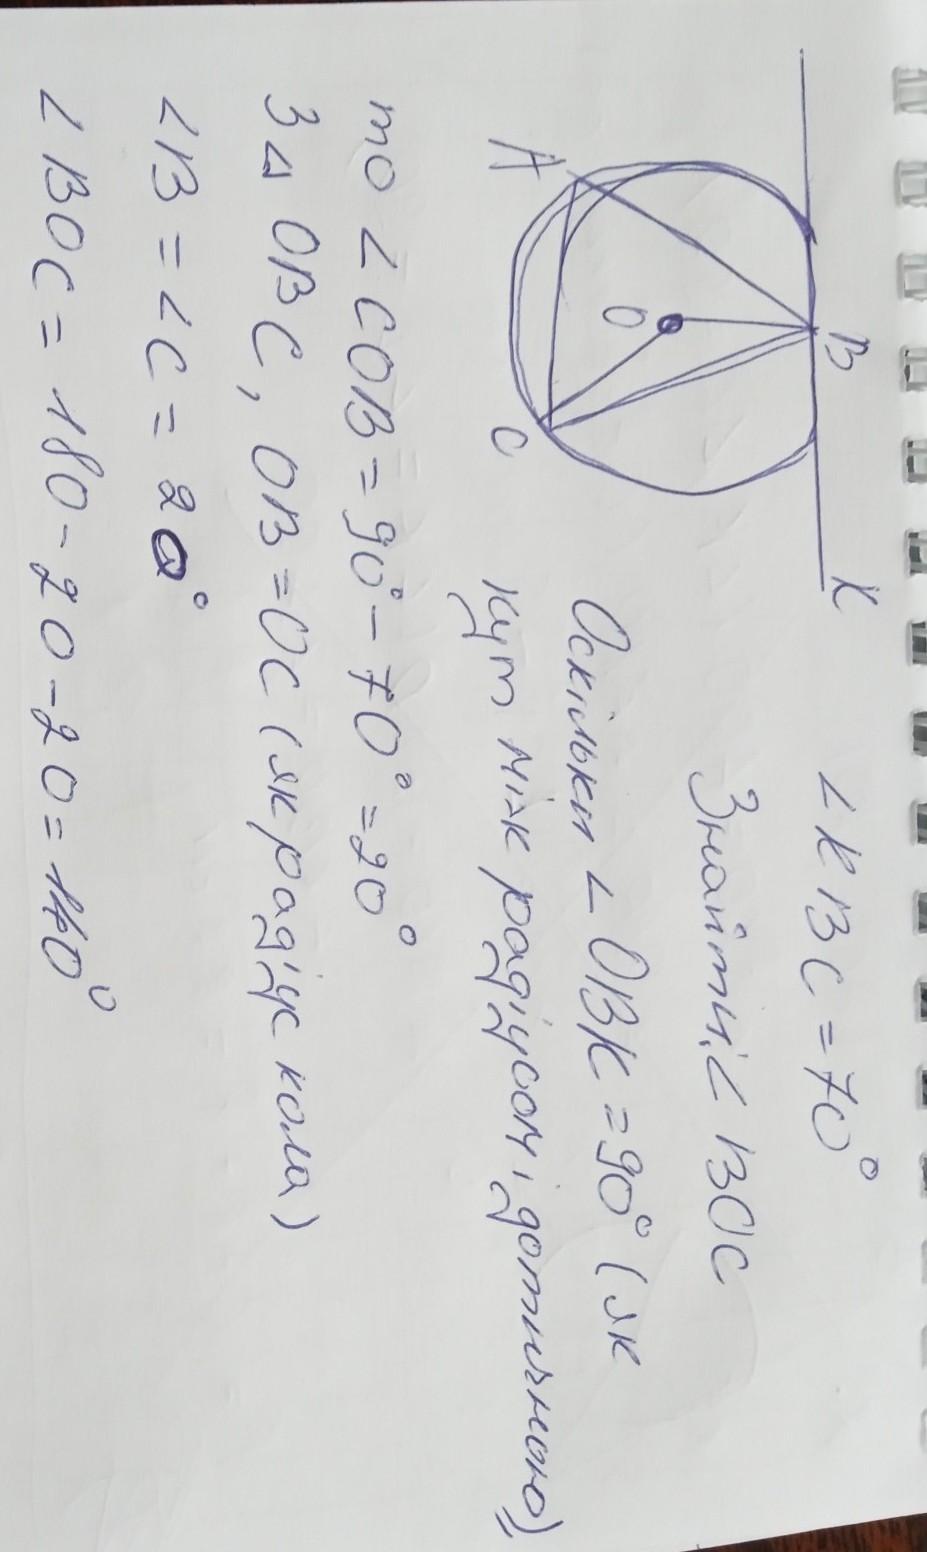 B
K
A
O
C
∠KBC = 70°
Знайти: ∠BOC
Оскільки ∠OBK = 90° (як
кут між радіусом і дотичною)
то ∠COB = 90° - 70° = 20°
З △ OBC, OB = OC (як радіус кола)
∠B = ∠C = 20°
∠BOC = 180 - 20 - 20 = 140°